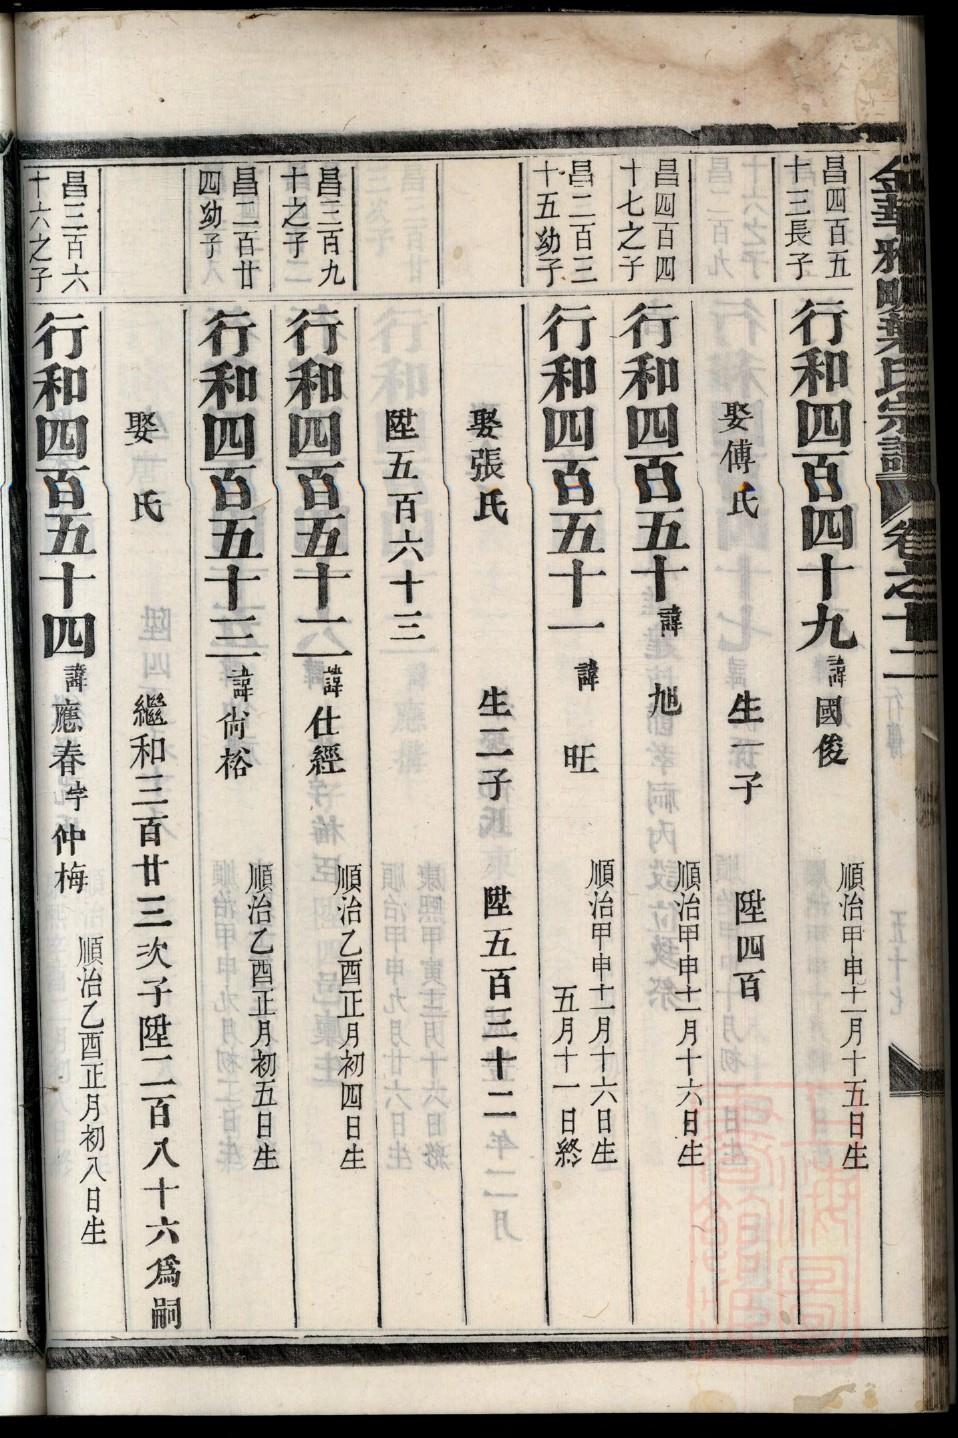 金華雅畈葉氏宗譜 卷之十二
昌四百五十三長子
行和四百四十九 諱國俊 順治甲申十一月十五日生
娶傅氏 生一子 陞四百
昌四百四十七之子
行和四百五十 諱旭 順治甲申十一月十六日生
昌二百三十五幼子
行和四百五十一 諱旺 順治甲申十一月十六日生 五月十一日終
娶張氏 生二子 陞五百三十二
陞五百六十三
昌三百九十之子
行和四百五十二 諱仕經 順治乙酉正月初四日生
昌二百廿四幼子
行和四百五十三 諱尙裕 順治乙酉正月初五日生
娶 氏 繼和三百廿三次子陞二百八十六爲嗣
昌三百六十六之子
行和四百五十四 諱應春字仲梅 順治乙酉正月初八日生